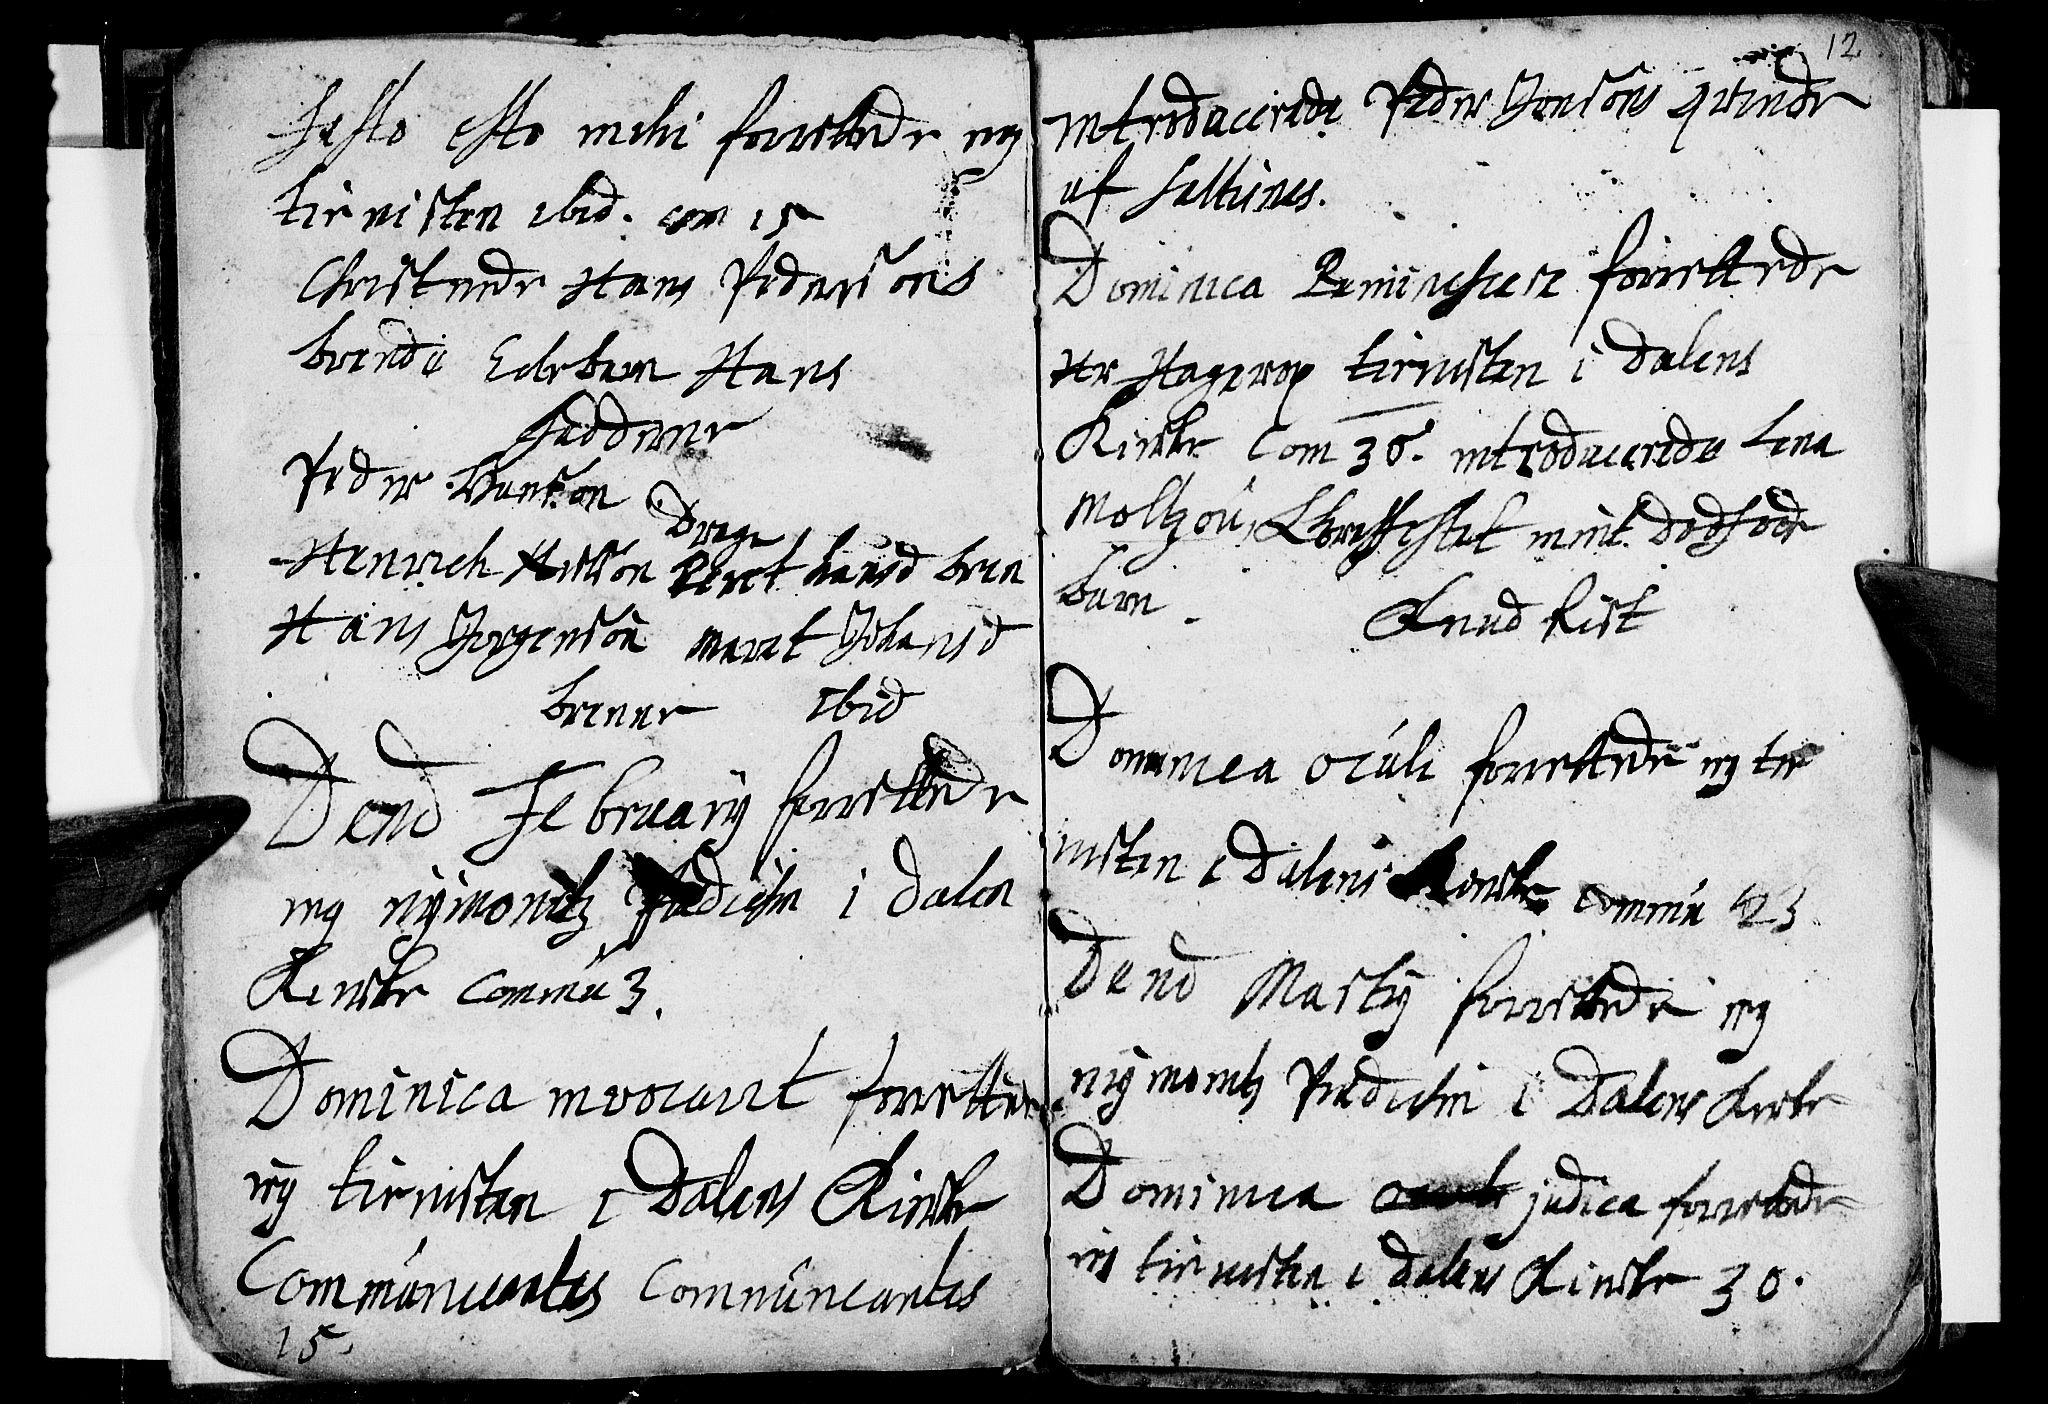 Festo esto mihi forrettede ieg
tienisten ibid. com 15
Christnede Hans Pedersøns
brende Echebarn Hans
Fadderne
Peder Hanson
Drage
Henrich Nilson Beret hansd bren
Hans Jørgensøn Maret Johansd
brenne ibid
Dend Februarij forrettede
ieg nÿmonetz Prædichn i Dalen
Kirche commu 3.
Dominica invocavit forrettede
ieg tienisten i Dalens Kirche
Communicantes Communicantes
15.
12
introducerede Peder Jonsøns qvinde
af Saltünes.
Dominica Reminiscere forrettede
Hr Hagerop tienisten i Dalens
Kirche Com 36. introducerede Lena
Moltzou, mit dødfød
barn.
Knud Rist
Dominica oculi forrettede ieg tie
nisten i Dalens Kirche commu 23
Dend Martÿ forrettede ieg
nÿmonetz Prædichn i Dalens Kirche
Dominica judica forrettede
ieg tienisten i Dalens Kirche 30.